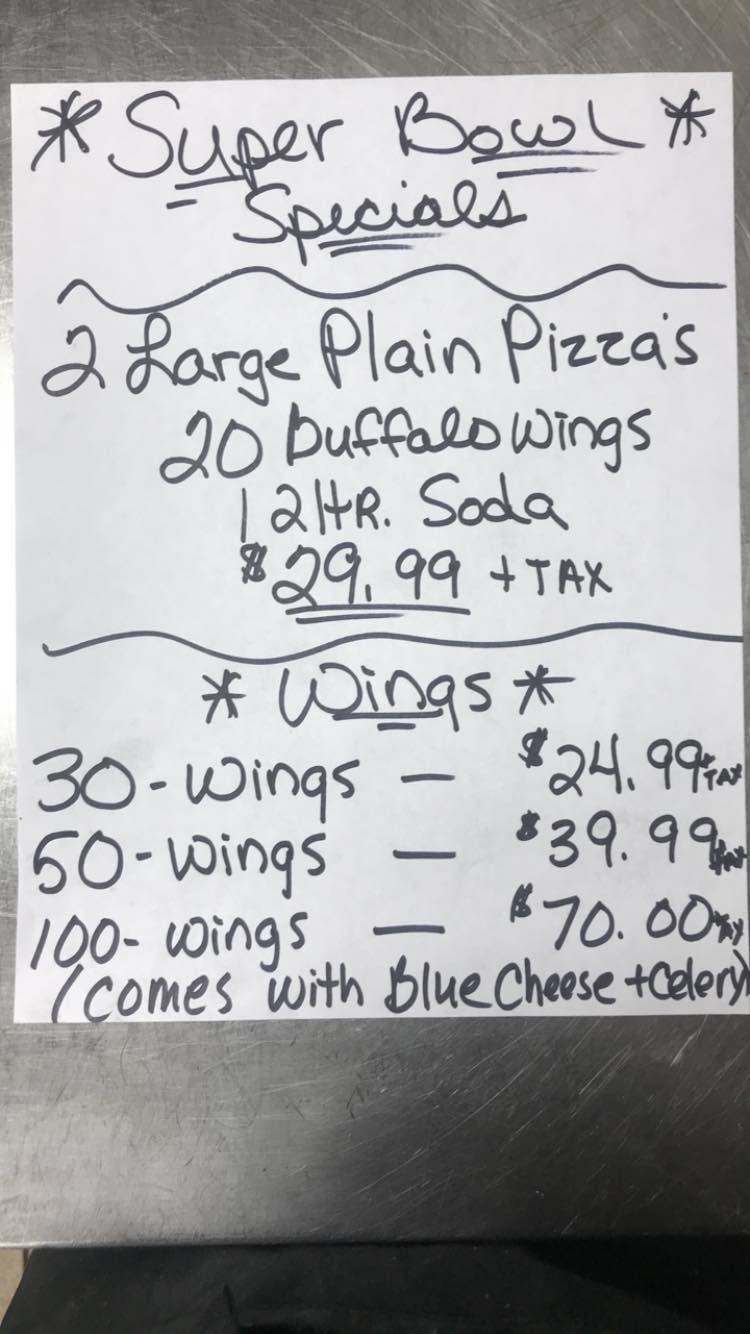 * Super Bowl *
Specials
2 Large Plain Pizza's
20 Buffalo Wings
1 2 ltR. Soda
$29.99 + TAX
* Wings *
30 - Wings — $24.99 + TAX
50 - Wings — $39.99 + TAX
100 - Wings — $70.00 + TAX
(comes with Blue Cheese + Celery)